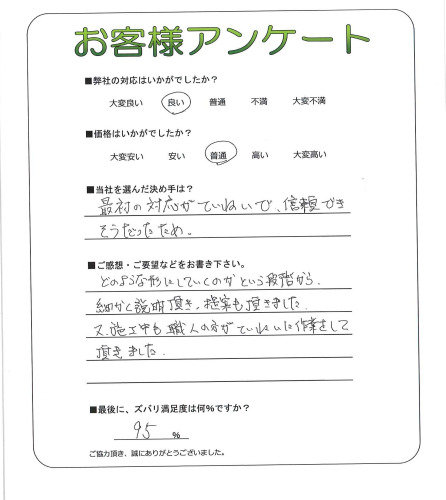 お客様アンケート
■弊社の対応はいかがでしたか？
大変良い 良い 普通 不満 大変不満
■価格はいかがでしたか？
大変安い 安い 普通 高い 大変高い
■当社を選んだ決め手は？
最初の対応がていねいで、信頼でき
そうだったため。
■ご感想・ご要望などをお書き下さい。
どのような形にしていくのかという段階から、
細かく説明頂き、提案も頂きました。
又、施工中も職人の方がていねいに作業をして
頂きました。
■最後に、ズバリ満足度は何%ですか？
95 %
ご協力頂き、誠にありがとうございました。